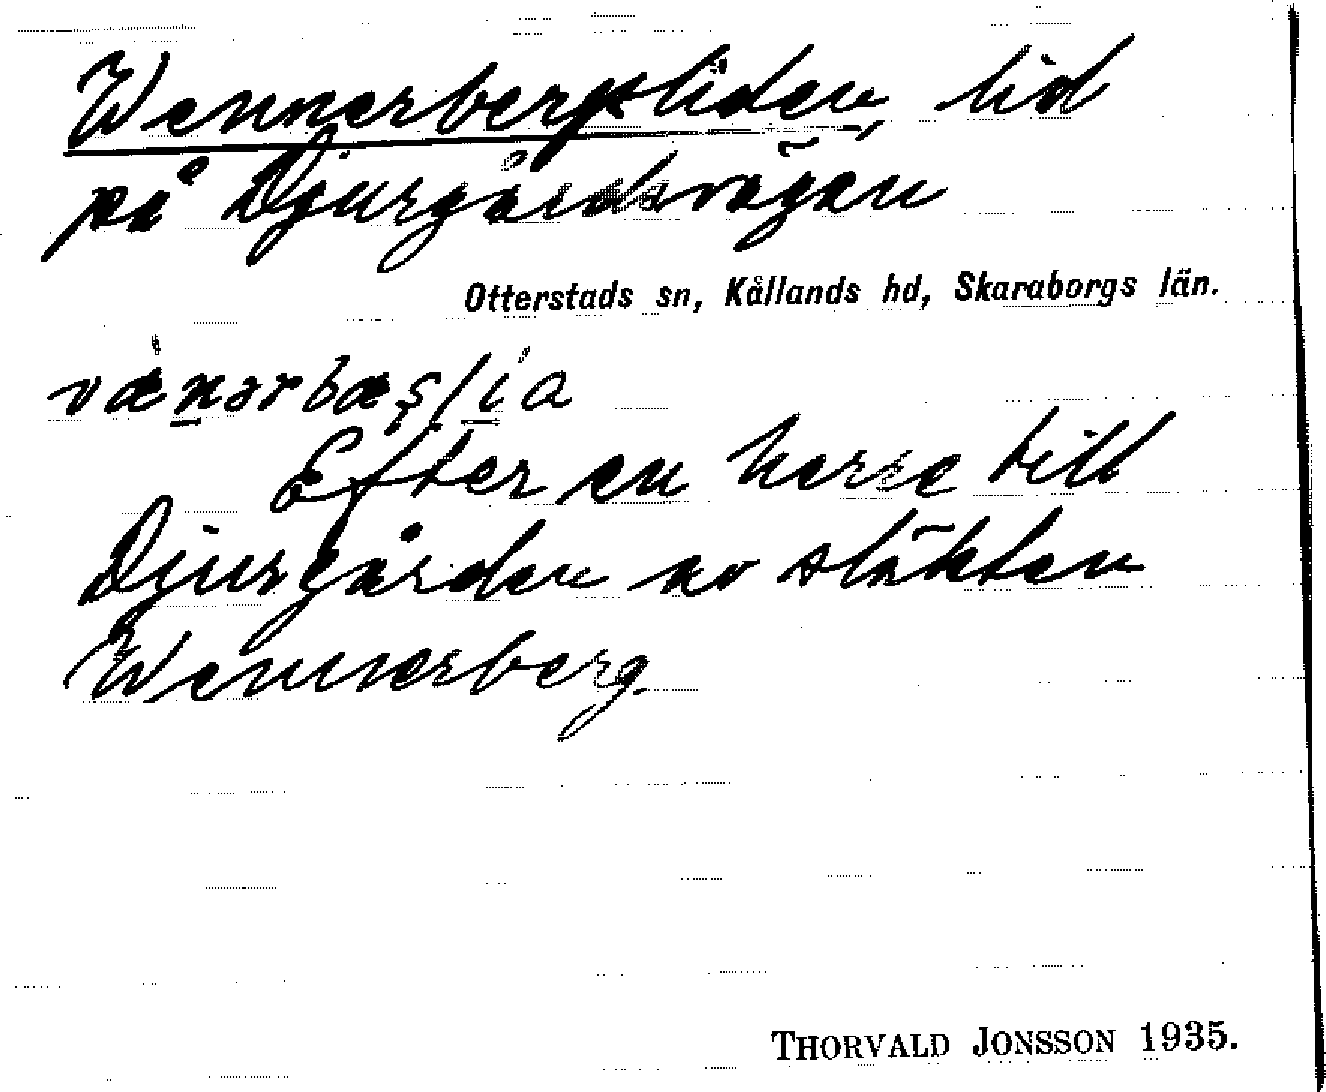 Wennerbergsliden, lid
på Djurgårdsvägen
Otterstads sn, Kållands hd, Skaraborgs län.
vænərbæşlia
Efter en herre till
Djurgården av släkten
Wennerberg.
THORVALD JONSSON 1935.